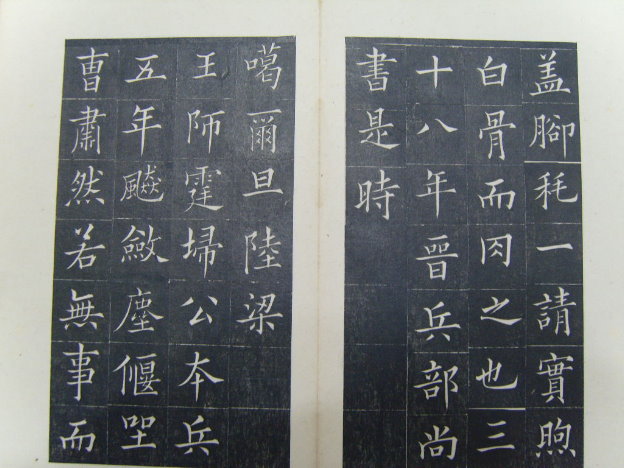 盖腳耗一請實煦
白骨而肉之也三
十八年晉兵部尚
書是時
噶爾旦陸梁
王師霆埽公本兵
五年飈斂塵偃坐
曹肅然若無事而